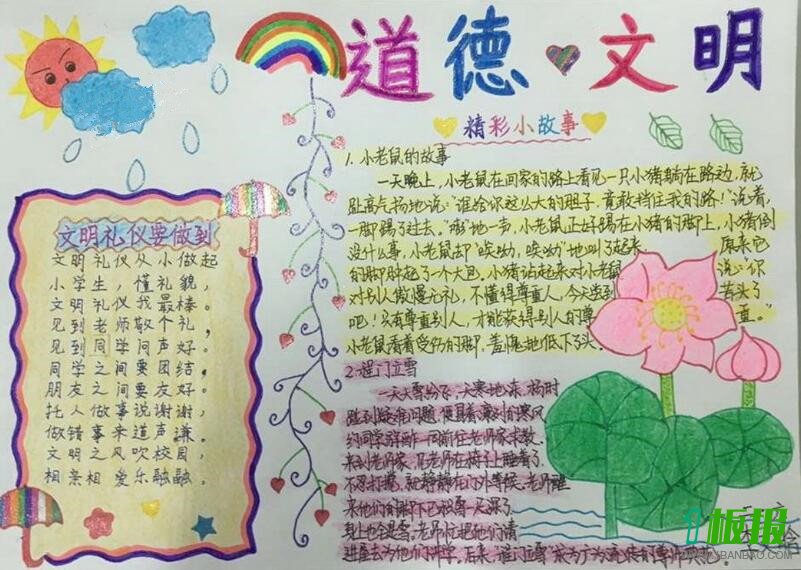 道德文明
精彩小故事
文明礼仪要做到
文明礼仪从小做起
小学生，懂礼貌，
文明礼仪我最棒。
见到老师敬个礼，
见到同学问声好。
同学之间要团结，
朋友之间要友好。
托人做事说谢谢，
做错事来道声谦。
文明之风吹校园，
相亲相爱乐融融。
1.小老鼠的故事
一天晚上，小老鼠在回家的路上看见一只小猪躺在路边，就
趾高气扬地说："谁给你这么大的胆子，竟敢挡住我的路！"说着，
一脚踢了过去。"嘭"地一步，小老鼠正好踢在小猪的脚上，小猪倒
没什么事，小老鼠却"唉呦，唉呦"地叫了起来。原来它
的脚肿起了一个大包，小猪站起来对小老鼠说："你
对别人傲慢无礼，不懂得尊重人，今天尝到苦头了
吧！只有尊重别人，才能获得别人的尊重。"
小老鼠看着受伤的脚，羞愧地低下了头。
2.程门立雪
一天大雪纷飞，天寒地冻，杨时
碰到疑难问题，便冒着凛冽的寒风
约同学 一同前往老师家求教，
来到老师家，见老师在椅子上睡着了，
不忍打扰，就静静在门外等候。老师醒
来他们的脚下已积雪一尺深了，
身上也全是雪。老师忙把他们请
进屋去为他们讲学。后来，"程门立雪"成为广为流传的尊师
板报